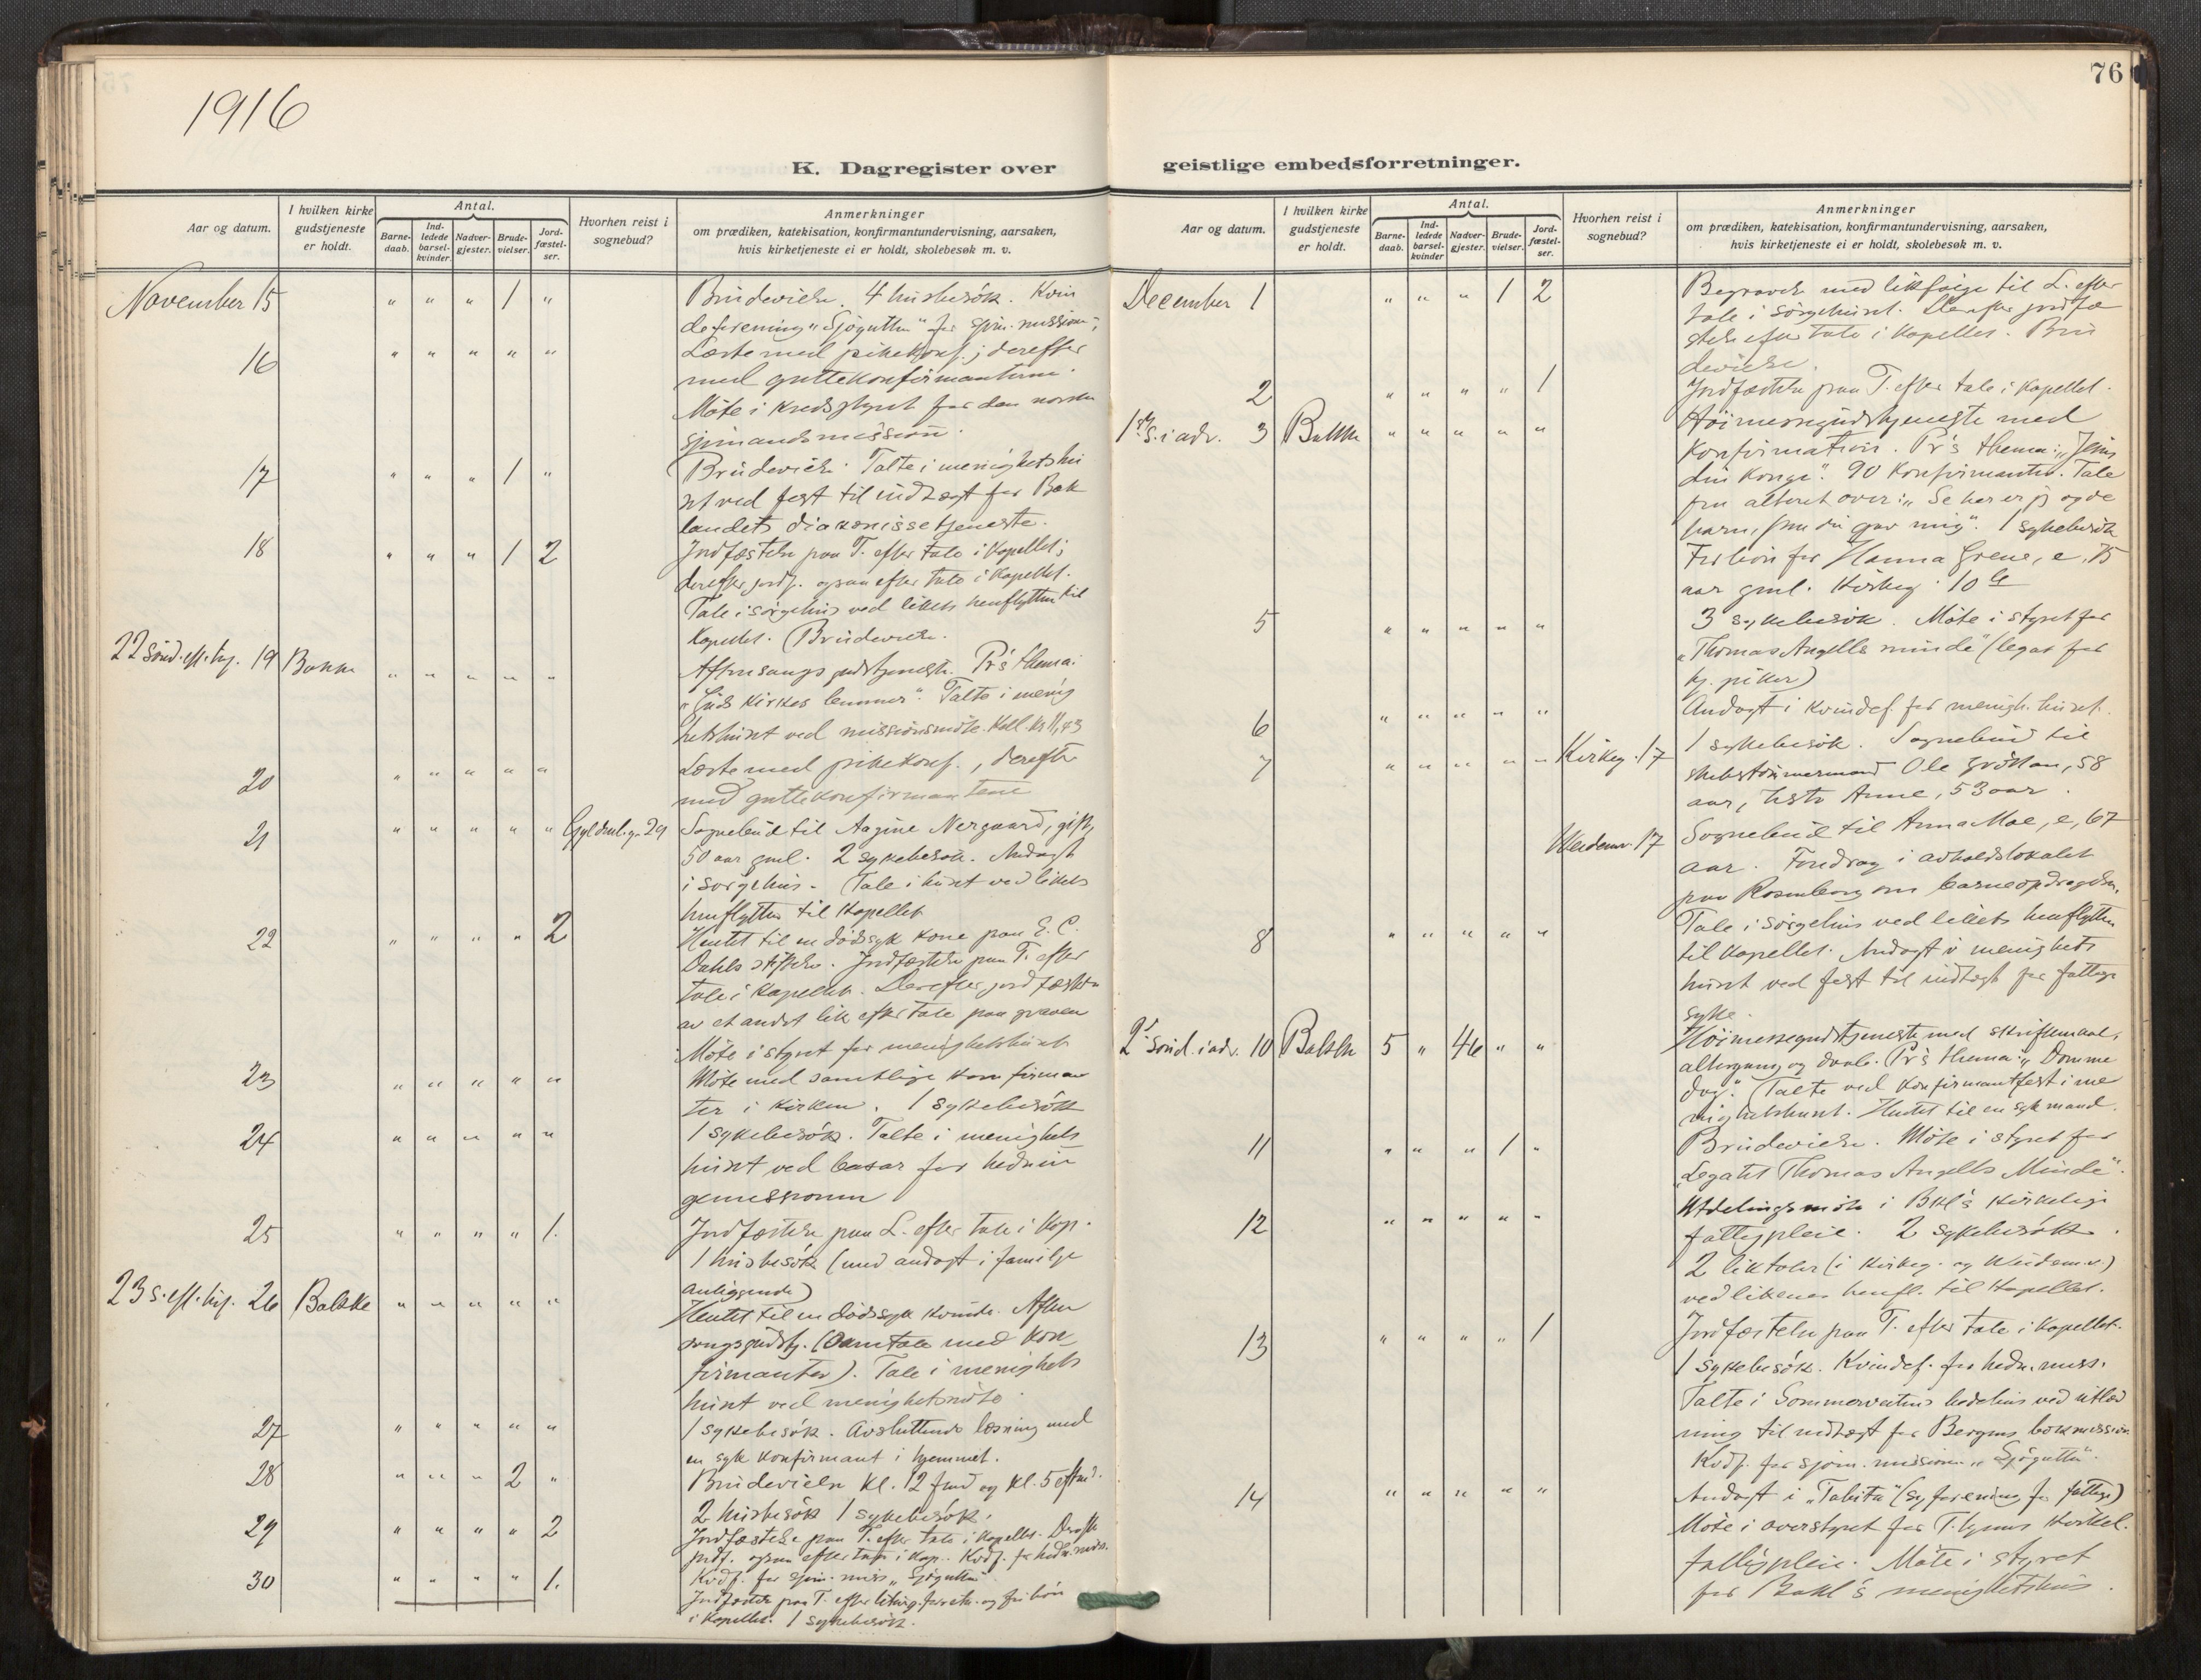 1916
76
K. Dagregister over
geistlige embedsforretninger.
Aar og datum.
I hvilken kirke gudstjeneste er holdt.
Antal.
Barne-daab.
Ind-ledede barsel-kvinder.
Nadver-gjester.
Brude-vielser.
Jord-fæstel-ser.
Hvorhen reist i sognebud?
Anmerkninger
om prædiken, katekisation, konfirmantundervisning, aarsaken,
hvis kirketjeneste ei er holdt, skolebesøk m. v.
November 15 " " " 1 " Brudevielse. 4 husbesök. Kvin
deforening "Sjögutten" for sjm. mission;
16 " " " " " Læste med pikekonf.; derefter
med guttekonfirmanterne.
Möte i kredsstyret for den norske
sjömandsmission.
17 " " " 1 " Brudevielse. Talte i menighetshu
set ved fest til indtægt for Bak
landets diakonissetjeneste.
18 " " " 1 2 Jordfæstelse paa T. efter tale i kapellet;
derefter jordf. ogsaa efter tale i kapellet.
Tale i sörgehus ved likets henflytten til
kapellet. Brudevielse.
22 sönd. eft. trf. 19 Bakke " " " " " Aftensangsgudstjeneste. Pr's thema:
"Guds kirkes lemmer". Talte i menig
hetshuset ved missionsmöte. Koll. kr 11,43
20 " " " " " Læste med pikekonf., derefter
med guttekonfirmantene
21 " " " " " Gyldenl. g. 29 Sognebud til Aagine Nergaard, gift,
50 aar gml. 2 sykebesök. Andagt
i sörgehus. Tale i huset ved likets
henflytten til kapellet
22 " " " " 2 Hentet til en dödssyk kone paa E. C.
Dahls stiftelse. Jordfæstelse paa T. efter
tale i kapellet. Derefter jordfæstelse
av et andet lik efter tale paa graven
Möte i styret for menighetshuset
23 " " " " " Möte med samtlige konfirman
ter i kirken. 1 sykebesök
24 " " " " " 1 sykebesök. Talte i menighets
huset ved basar for hednin
gemissionen
25 " " " " 1. Jordfæstelse paa L. efter tale i kap.
1 husbesök (med andagt i familje
anliggende)
23 s. eft. trf. 26 Bakke " " " " " Hentet til en dödssyk kvinde. Aften
sangsgudstj. (Samtale med kon
firmanter). Tale i menighets
huset ved menighetsmöte.
27 " " " " " 1 sykebesök. Avsluttende læsning med
en syk konfirmant i hjemmet.
28 " " " 2 " Brudevielse kl. 12 fmd og kl. 5 eftmd.
2 husbesök 1 sykebesök.
29 " " " " 2 Jordfæstelse paa T. efter tale i kapellet. Derefter
jordf. ogsaa efter tale i kap. Kvdf. for hedn. miss.
30 " " " " 1. Kvdf. for sjm. miss "Sjögutten"
Jordfæstelse paa T. efter liturg. og forbön
i kapellet. 1 sykebesök.
Aar og datum.
I hvilken kirke gudstjeneste er holdt.
Antal.
Barne-daab.
Ind-ledede barsel-kvinder
Nadver-gjester.
Brude-vielser.
Jord-fæstel-ser.
Hvorhen reist i sognebud?
Anmerkninger
om prædiken, katekisation, konfirmantundervisning, aarsaken,
hvis kirketjeneste ei er holdt, skolebesøk m. v.
December 1 " " " 1 2 Begravelse med likfölge til L. efter
tale i sörgehuset. Derefter jordfæ
stelse efter tale i kapellet. Bru
devielse.
2 " " " " 1 Jordfæstelse paa T. efter tale i kapellet.
1ste s. i adv. 3 Bakke " " " " " Höimessegudstjeneste med
konfirmation. Pr's thema: "Jesus
din konge". 90 konfirmanter. Tale
fra alteret over: "Se her er jeg og de
barn, som du gav mig". 1 sykebesök
Forbön for Hanna Grene, e, 75
aar gml. Kirkeg. 10
5 " " " " " 3 sykebesök. Möte i styret for
"Thomas Angells minde" (legat for
piker)
6 " " " " " Andagt i kvindef. for menigh. huset.
7 " " " " " Kirkeg. 17 1 sykebesök. Sognebud til
skibstömmermand Ole Gröttan, 58
aar, hustr Anne, 53 aar.
Weidem. 17 Sognebud til Anna Moe, e, 67
aar. Foredrag i avholdslokalet
paa Rosenborg om barneopdragelse.
8 " " " " " Tale i sörgehus ved likets henflytten
til kapellet. Andagt i menighets
huset ved fest til indtægt for fattige
syke.
2. sönd. i adv. 10 Bakke 5 " 46 " " Höimessegudstjeneste med skriftemaal,
altergang og daab. Pr's thema: "Domme
dag". Talte ved konfirmantfest i me
nighetshuset. Hentet til en syk mand.
11 " " " 1 " Brudevielse. Möte i styret for
"Legatet Thomas Angells Minde".
12 " " " " " Utdelingsmöte i Bkl's kirkelige
fattigpleie. 2 sykebesök.
2 liktaler (i Kirkeg. og Weidem.v.)
ved likenes henfl. til kapellet.
13 " " " " 1 Jordfæstelse paa T. efter tale i kapellet.
1 sykebesök. Kvindef. for hedn. miss.
Talte i Sommerveitens bedehus ved utlod
ning til indtægt for Bergens bokmission
Kvdf. for sjöm. mission "Sjögutten".
14 " " " " " Andagt i "Tabita" (syforening for fattige)
Möte i overstyret for T.hjems kirkel.
fattigpleie. Möte i styret
for Bakl's menighetshus.